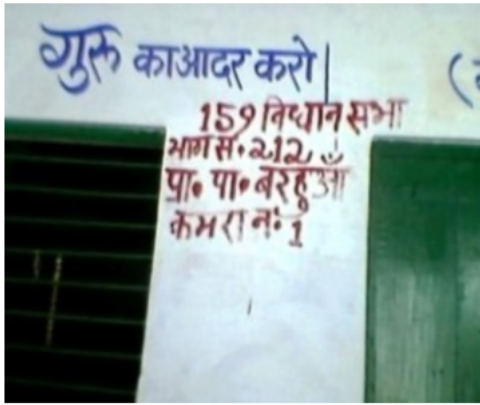 गुरु का आदर करो |
159 विधान सभा
भाग सं. 212
प्रा. पा. बरहूआँ
कमरा नं. 1